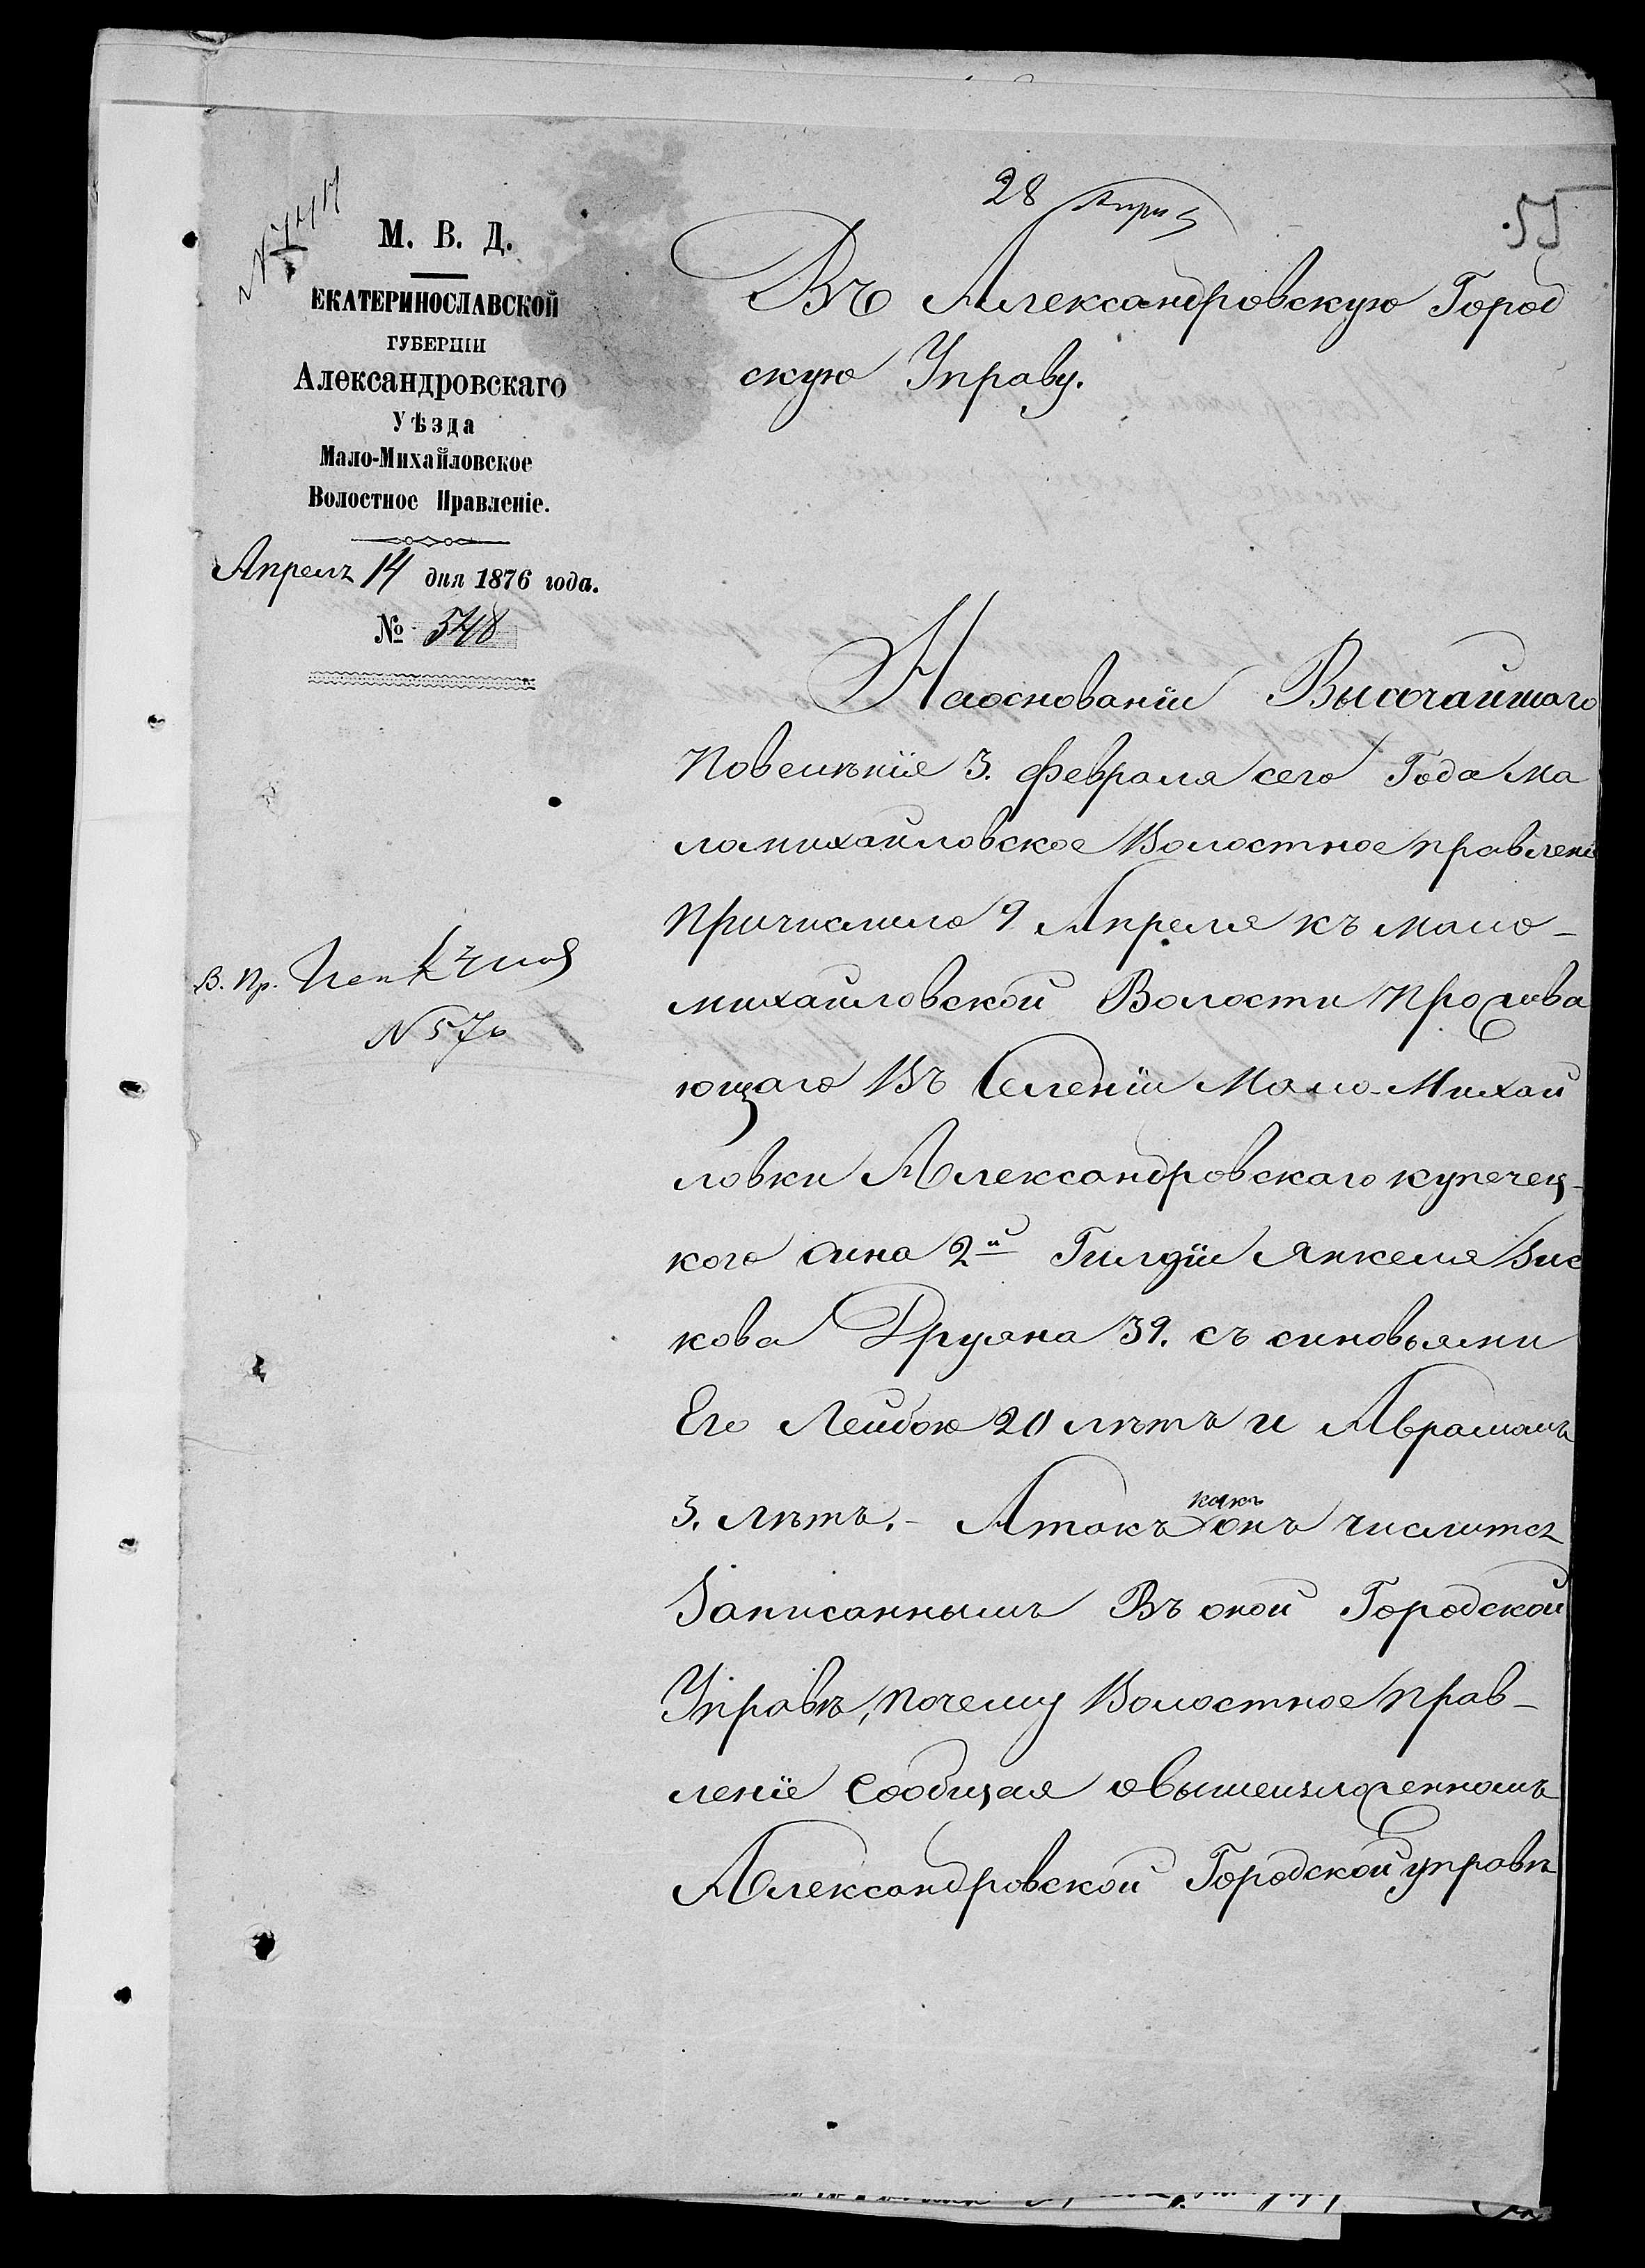 28 Апрѣ
55
М. В. Д.
ЕКАТЕРИНОСЛАВСКОЙ
ГУБЕРНІИ
Александровскаго
Уѣзда
Мало-Михайловское
Волостное Правленіе.
Апреля 14 дня 1876 года.
№ 548
В. Пр.
N 570
Въ Александровскую Город
скую Управу.
Наоснованіи Высочайшаго
повелѣнія 3. февраля сего Года Ма
ломихайловское Волостное правлені
причислило 9 Апреля къ мало-
михайловской Волости прожива
ющаго Въ Селеніи Мало-Михай
ловки Александровскаго купечец-
кого сина 2й Гилдіи Янкеля Зис
кова Друяна 39. съ синовьями
Его Лейбою 20 лѣтъ и Аврамомъ
3. лѣтъ.- Атакъ какъ онъ числится
Записаннымъ Въ оной Городской
Управѣ, почему Волостное прав-
леніе Сообщая овышеизложенномъ
Александровской Городской управѣ